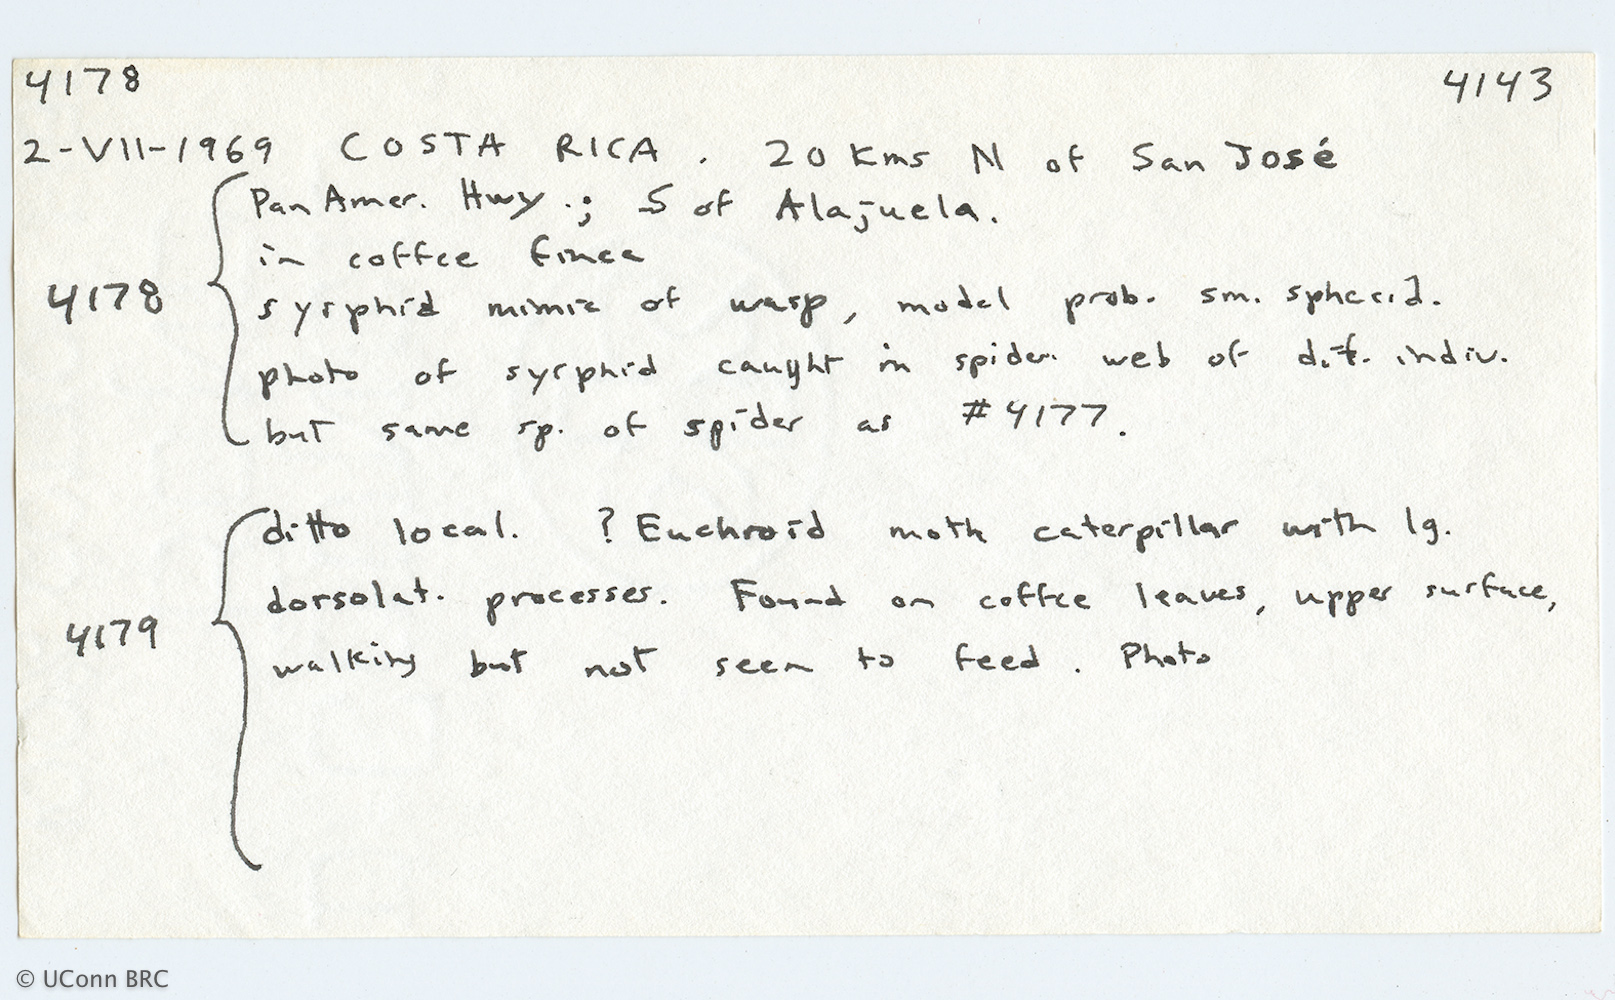 4178 4143
2-VII-1969 COSTA RICA. 20 Kms N of San José
Pan Amer. Hwy.; S of Alajuela.
in coffee finca
4178 syrphid mimic of wasp, model prob. sm. sphecid.
photo of syrphid caught in spider web of dif. indiv.
but same sp. of spider as #4177.
ditto local. ? Euchroid moth caterpillar with lg.
dorsolat. processes. Found on coffee leaves, upper surface,
4179 walking but not seen to feed. Photo
© UConn BRC